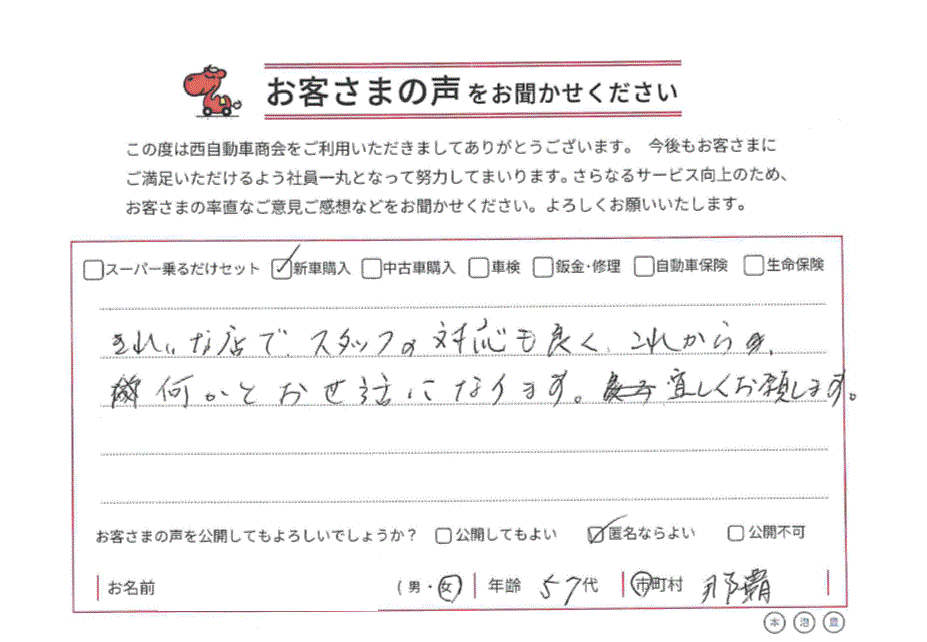 お客さまの声をお聞かせください
この度は西自動車商会をご利用いただきましてありがとうございます。 今後もお客さまに
ご満足いただけるよう社員一丸となって努力してまいります。さらなるサービス向上のため、
お客さまの率直なご意見ご感想などをお聞かせください。よろしくお願いいたします。
スーパー乗るだけセット 新車購入 中古車購入 車検 鈑金・修理 自動車保険 生命保険
きれいな店で、スタッフの対応も良く、これからも、
何かとおせ話になります。宜しくお願いします。
お客さまの声を公開してもよろしいでしょうか? 公開してもよい 匿名ならよい 公開不可
お名前 (男・女) 年齢 57代 市町村 那覇
本 泡 豊